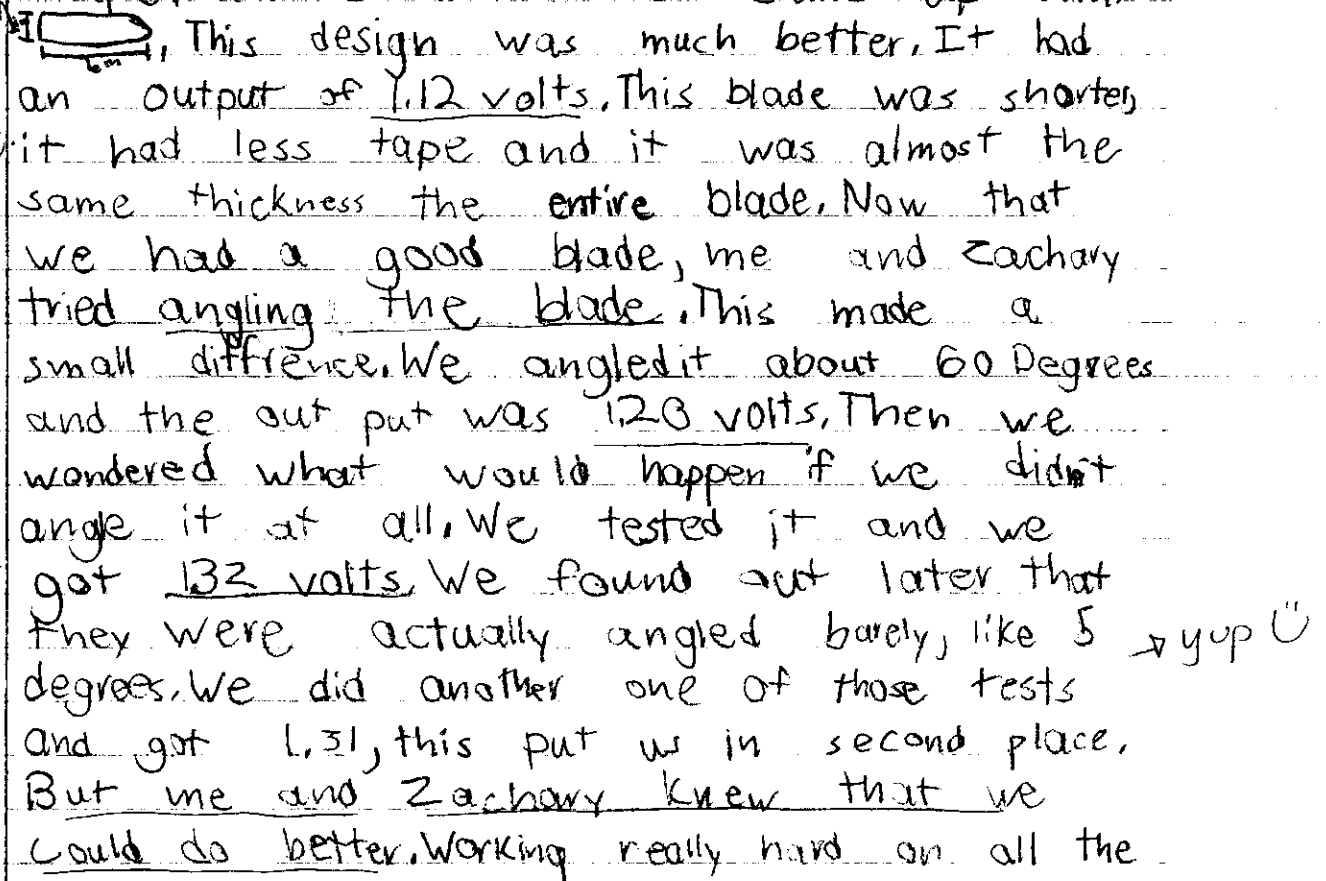 This design was much better. It had
an output of 1.12 volts. This blade was shorter,
it had less tape and it was almost the
same thickness the entire blade. Now that
we had a good blade, me and Zachary
tried angling the blade. This made a
small diffrence. We angled it about 60 Degrees
and the out put was 1.28 volts. Then we
wondered what would happen if we didn't
angle it at all. We tested it and we
got 1.32 volts. We found out later that
they were actually angled barely, like 5 → yup
degrees. We did another one of those tests
and got 1.31, this put us in second place.
But me and Zachary knew that we
could do better. Working really hard on all the